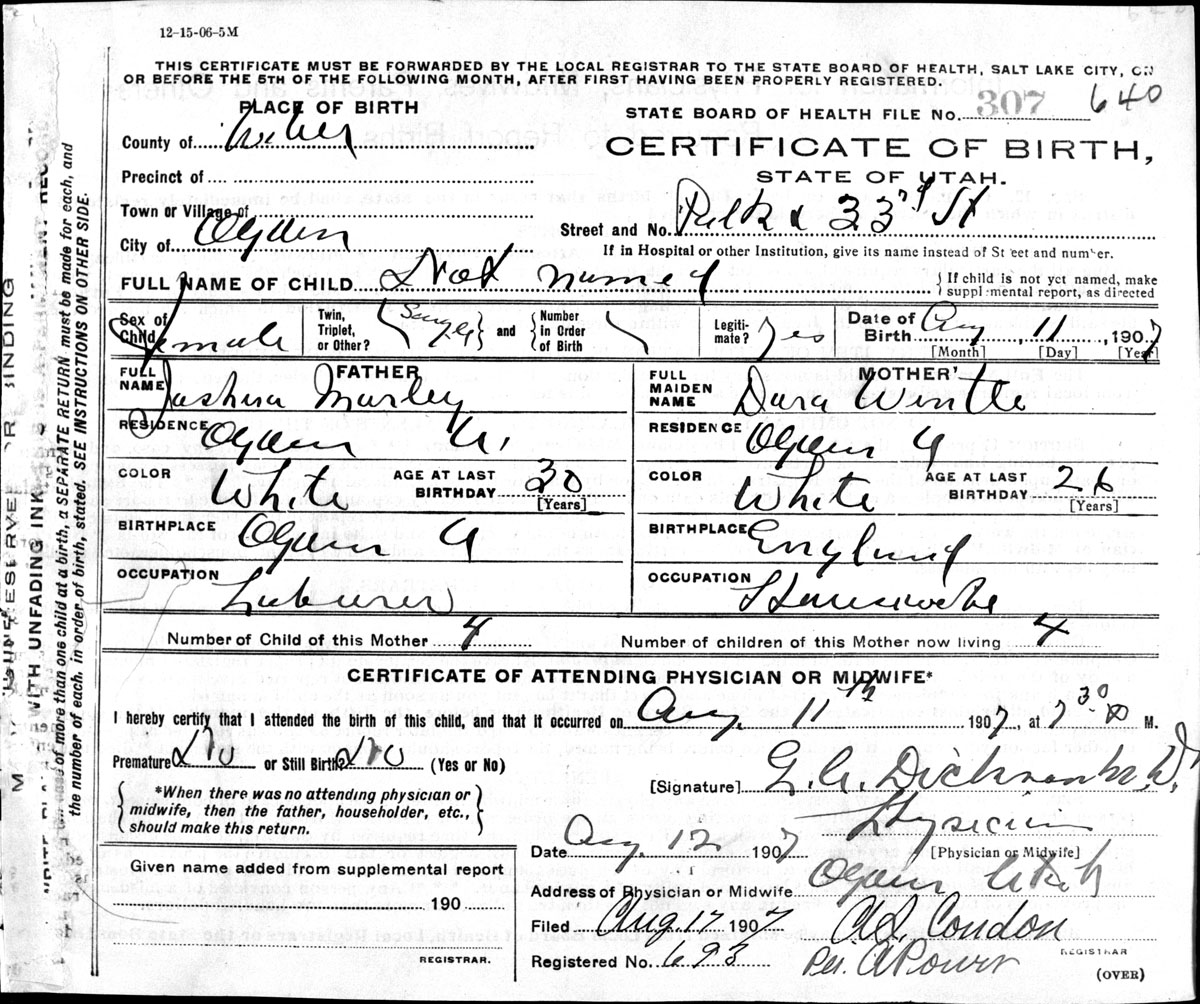 12-15-06-5M
THIS CERTIFICATE MUST BE FORWARDED BY THE LOCAL REGISTRAR TO THE STATE BOARD OF HEALTH, SALT LAKE CITY, ON
OR BEFORE THE 5TH OF THE FOLLOWING MONTH, AFTER FIRST HAVING BEEN PROPERLY REGISTERED.
PLACE OF BIRTH
STATE BOARD OF HEALTH FILE No. 307 640
County of Weber
CERTIFICATE OF BIRTH,
STATE OF UTAH.
Precinct of
Town or Village of
Street and No. & 33rd St
City of Ogden
If in Hospital or other Institution, give its name instead of Street and number.
FULL NAME OF CHILD Not named
{ If child is not yet named, make
supplemental report, as directed
Sex of Child Female
Twin, Triplet, or Other? { Single } and { Number in Order of Birth }
Legitimate? Yes
Date of Birth Aug, 11, 1907
[Month] [Day] [Year]
FATHER
FULL NAME Joshua Marley
RESIDENCE Ogden U.
COLOR White
AGE AT LAST BIRTHDAY 30
[Years]
BIRTHPLACE Ogden U
OCCUPATION Laburer
MOTHER
FULL MAIDEN NAME Dora Wintle
RESIDENCE Ogden U
COLOR White
AGE AT LAST BIRTHDAY 26
[Years]
BIRTHPLACE England
OCCUPATION Housewife
Number of Child of this Mother 4
Number of children of this Mother now living 4
CERTIFICATE OF ATTENDING PHYSICIAN OR MIDWIFE*
I hereby certify that I attended the birth of this child, and that it occurred on Aug. 11th 1907, at 7 30 M.
Premature No or Still Birth? No (Yes or No)
[Signature] G. A. Dickson M.D.
{ *When there was no attending physician or
midwife, then the father, householder, etc.,
should make this return. }
Physician
[Physician or Midwife]
Date Aug. 12 1907
Given name added from supplemental report
190
REGISTRAR.
Address of Physician or Midwife Ogden Utah
Filed Aug 17 1907 Condon
REGISTRAR
Registered No. 693 Per. A Power
(OVER)
WITH UNFADING INK
of more than one child at a birth, a SEPARATE RETURN must be made for each, and
the number of each, in order of birth, stated. SEE INSTRUCTIONS ON OTHER SIDE.